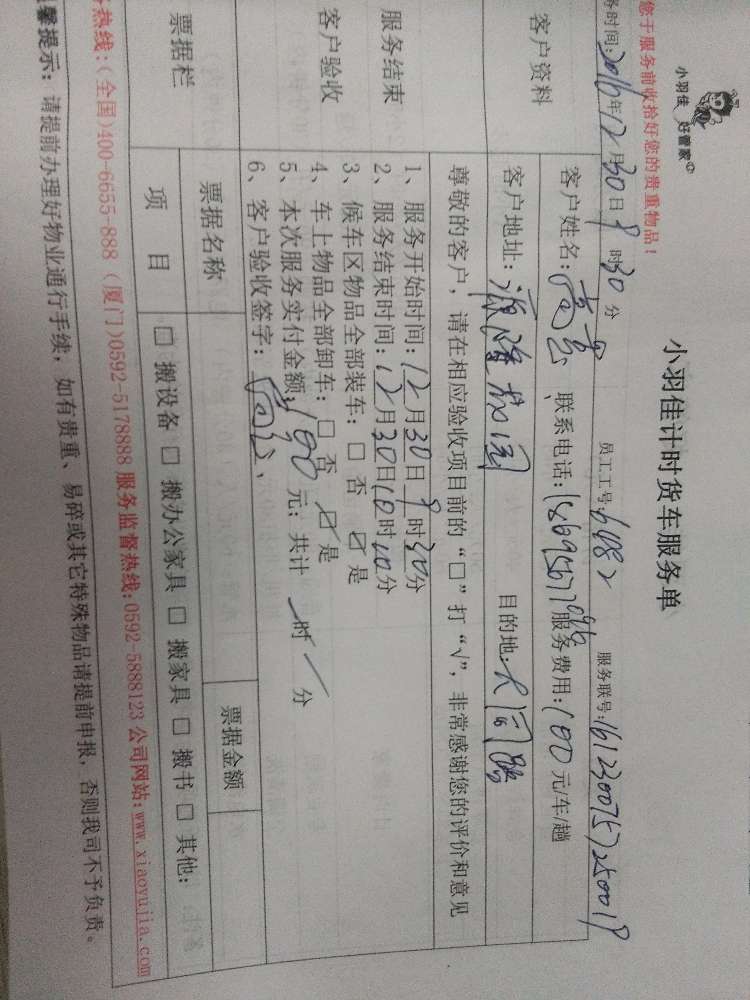 小羽佳 好管家
小羽佳计时货车服务单
您于服务前收拾好您的贵重物品！
务时间：2016年12月30日9时30分 员工工号：6482 服务联号：1612300757250019
客户资料
客户姓名： 联系电话： 服务费用：100元/车/趟
客户地址： 目的地：大同路
尊敬的客户，请在相应验收项目前的“□”打“√”，非常感谢您的评价和意见
服务结束
客户验收
1、服务开始时间：12月30日9时30分
2、服务结束时间：12月30日10时10分
3、候车区物品全部装车：□ 否 ☑ 是
4、车上物品全部卸车：□ 否 ☑ 是
5、本次服务实付金额：100元；共计 时 分
6、客户验收签字：
票据栏
票据名称 票据金额
项目 □ 搬设备 □ 搬办公家具 □ 搬家具 □ 搬书 □ 其他：
务热线：(全国)400-6655-888 (厦门)0592-5178888 服务监督热线：0592-5888123 公司网站：www.xiaoyujia.com
馨提示：请提前办理好物业通行手续，如有贵重、易碎或其它特殊物品请提前申报，否则我司不予负责。